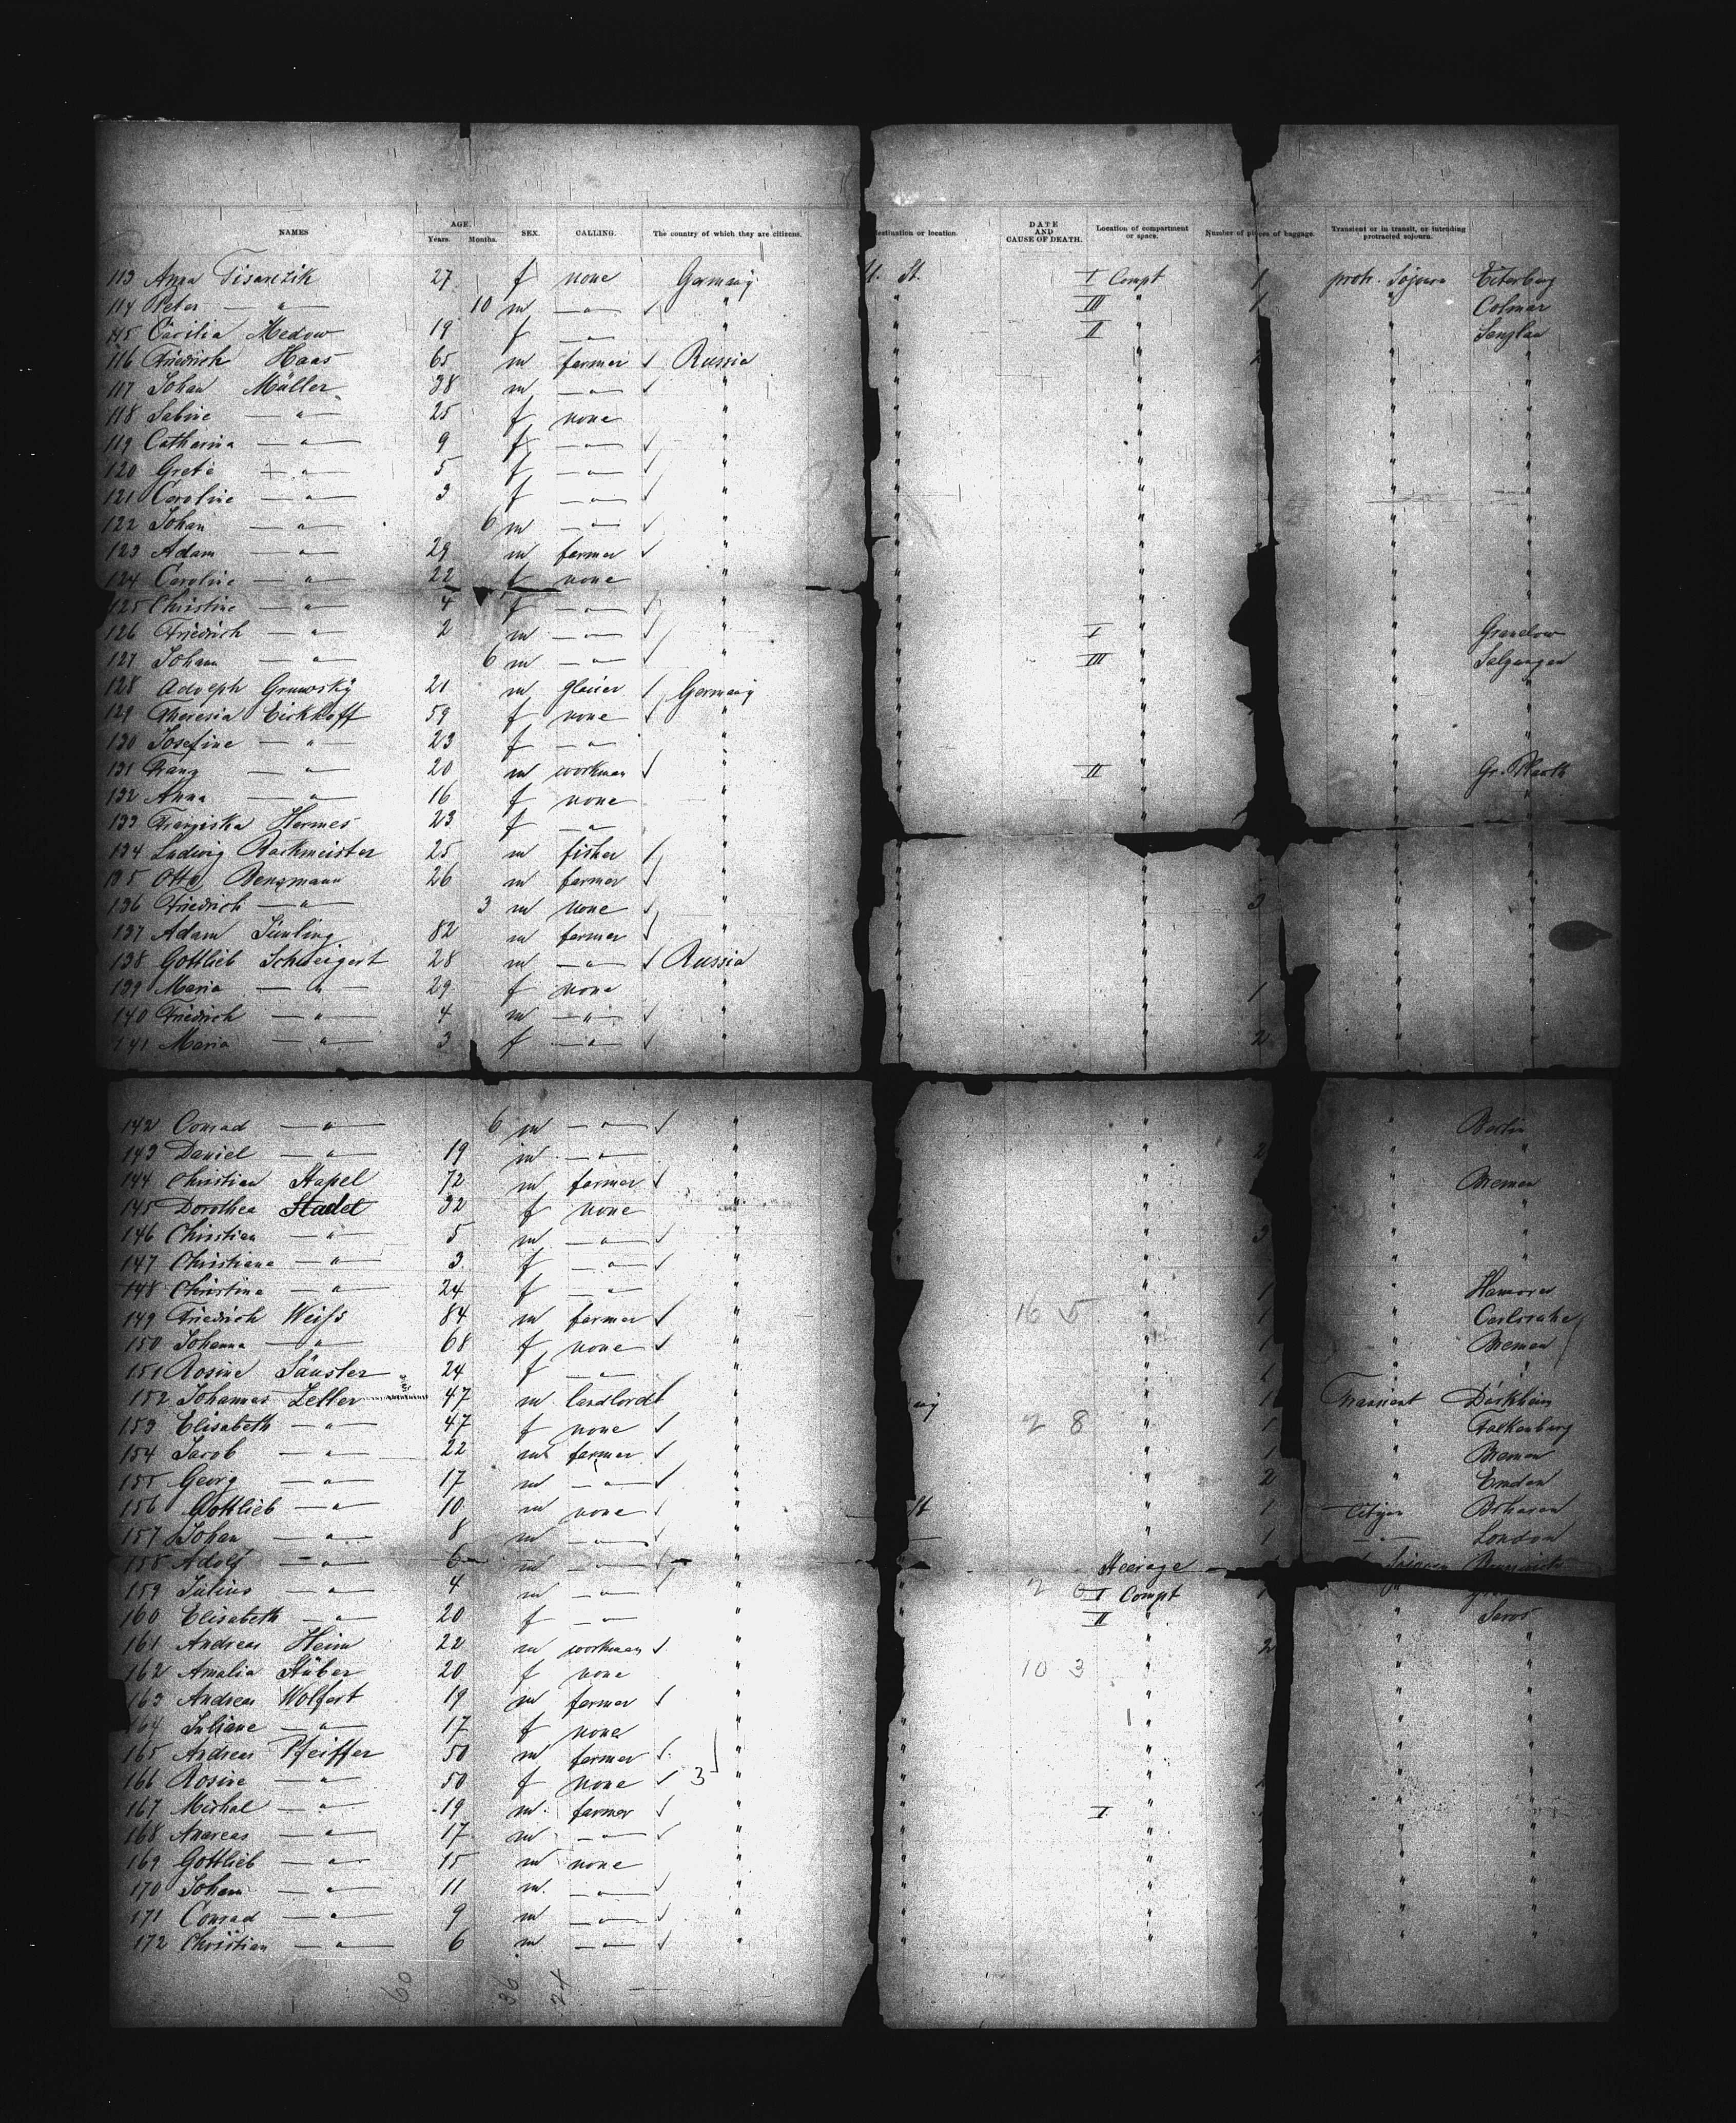 NAMES AGE. Years. Months. SEX. CALLING. The country of which they are citizens. destination or location. DATE AND CAUSE OF DEATH. Location of compartment or space. Number of pieces of baggage. Transient or in transit, or intending protracted sojourn.
113 Anna 27 f none Germany U. St. I Compt 1 protr. Sojourn
114 Peter — " — 10 m — " — √ " " III " 1 " Colmar
115 Cäcilia Medow 19 f — " — " " II " "
116 Friedrich Haas 65 m farmer √ Russia " " 2 " "
117 Johan Müller 38 m — " — √ " " " " "
118 Sabine — " — 25 f none " " " " "
119 Catharina — " — 9 f — " — √ " " " " "
120 Grete — " — 5 f — " — √ " " " " "
121 Caroline — " — 3 f — " — √ " " " " "
122 Johan — " — 6 m — " — √ " " " " "
123 Adam — " — 29 m farmer √ " " " " "
124 Caroline — " — 22 f none " " " " "
125 Christine — " — 4 f — " — √ " " " " "
126 Friedrich — " — 2 m — " — √ " " I " "
127 Johann — " — 6 m — " — √ " " III " "
128 Adolph Grunwsky 21 m √ Germany " " " "
129 Theresia Eickhoff 59 f none √ " " " " "
130 Josefine — " — 23 f — " — " " " " "
131 Franz — " — 20 m workman √ " " II " "
132 Anna — " — 16 f none " " " " "
133 Franziska Hermes 23 f — " — " " " " "
134 Ludwig Backmeister 25 m fisher √ " " " " "
135 Otto Bengmann 26 m farmer √ " " " " "
136 Friedrich — " — 3 m none √ " " " 3 " "
137 Adam 82 m farmer √ " " " " "
138 Gottlieb Schweigert 28 m — " — √ Russia " " " "
139 Maria — " — 29 f none " " " 1 " "
140 Friedrich — " — 4 m — " — √ " " " " "
141 Maria — " — 3 f — " — √ " " " 2 " "
142 Conrad — " — 6 m — " — √ " " " Berlin
143 Daniel — " — 19 m — " — " " 2 " "
144 Christian Stapel 72 m farmer √ " " " Bremen
145 Dorothea Stadel 32 f none " " " "
146 Christian — " — 5 m — " — √ " " 3 " "
147 Christiane — " — 3 f — " — √ " " " "
148 Christina — " — 24 f — " — " " 1 " Hannover
149 Friedrich Weiss 84 m farmer √ " 16 5 " 1 " Carlsruhe
150 Johanna — " — 68 f none √ " " 1 " Bremen
151 Rosine 24 f — " — " " 1 " "
152 Johannes Zeller 47 m landlord √ " " 1 Transient Dürkheim
153 Elisabeth — " — 47 f none √ " 2 8 " 1 " Falkenberg
154 Jacob — " — 22 m farmer √ " " 1 " Bremen
155 Georg — " — 17 m — " — √ " " 2 " Emden
156 Gottlieb — " — 10 m none √ " St " 1 Citizen
157 Johan — " — 8 m — " — √ " " 1 — " — London
158 Adolf — " — 6 m — " — √ " Steerage Sojourn
159 Julius — " — 4 m — " — √ " " 2 6 I Compt 1 "
160 Elisabeth — " — 20 f — " — " " II " "
161 Andreas Heim 22 m workman √ " " 2 " "
162 Amalia Stüber 20 f none " 10 3 " " "
163 Andreas Wolfert 19 m farmer √ " " " "
164 Juliane — " — 17 f none " " " " "
165 Andreas Pfeiffer 50 m farmer √ " " " " "
166 Rosine — " — 50 f none √ 3 " " " " "
167 Michal — " — 19 m farmer √ " " I " " "
168 Andreas — " — 17 m — " — √ " " " " "
169 Gottlieb — " — 15 m none " " " " "
170 Johann — " — 11 m — " — √ " " " " "
171 Conrad — " — 9 m — " — √ " " " " "
172 Christian — " — 6 m — " — √ " " " " "
60 36 24